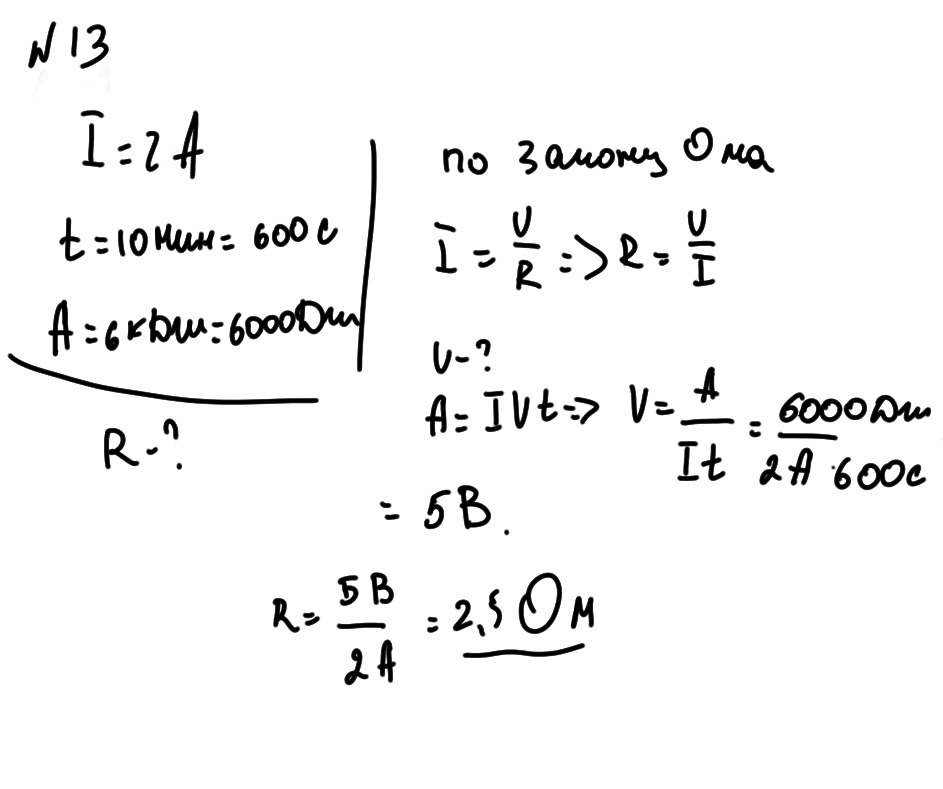 N 13
I = 2 A
t = 10 мин = 600 с
A = 6 кДж = 6000 Дж
R - ?
по закону Ома
I = U/R => R = U/I
U - ?
A = IUt => U = A/It = 6000 Дж/2 A · 600 с
= 5 В.
R = 5 В/2 A = 2,5 Ом